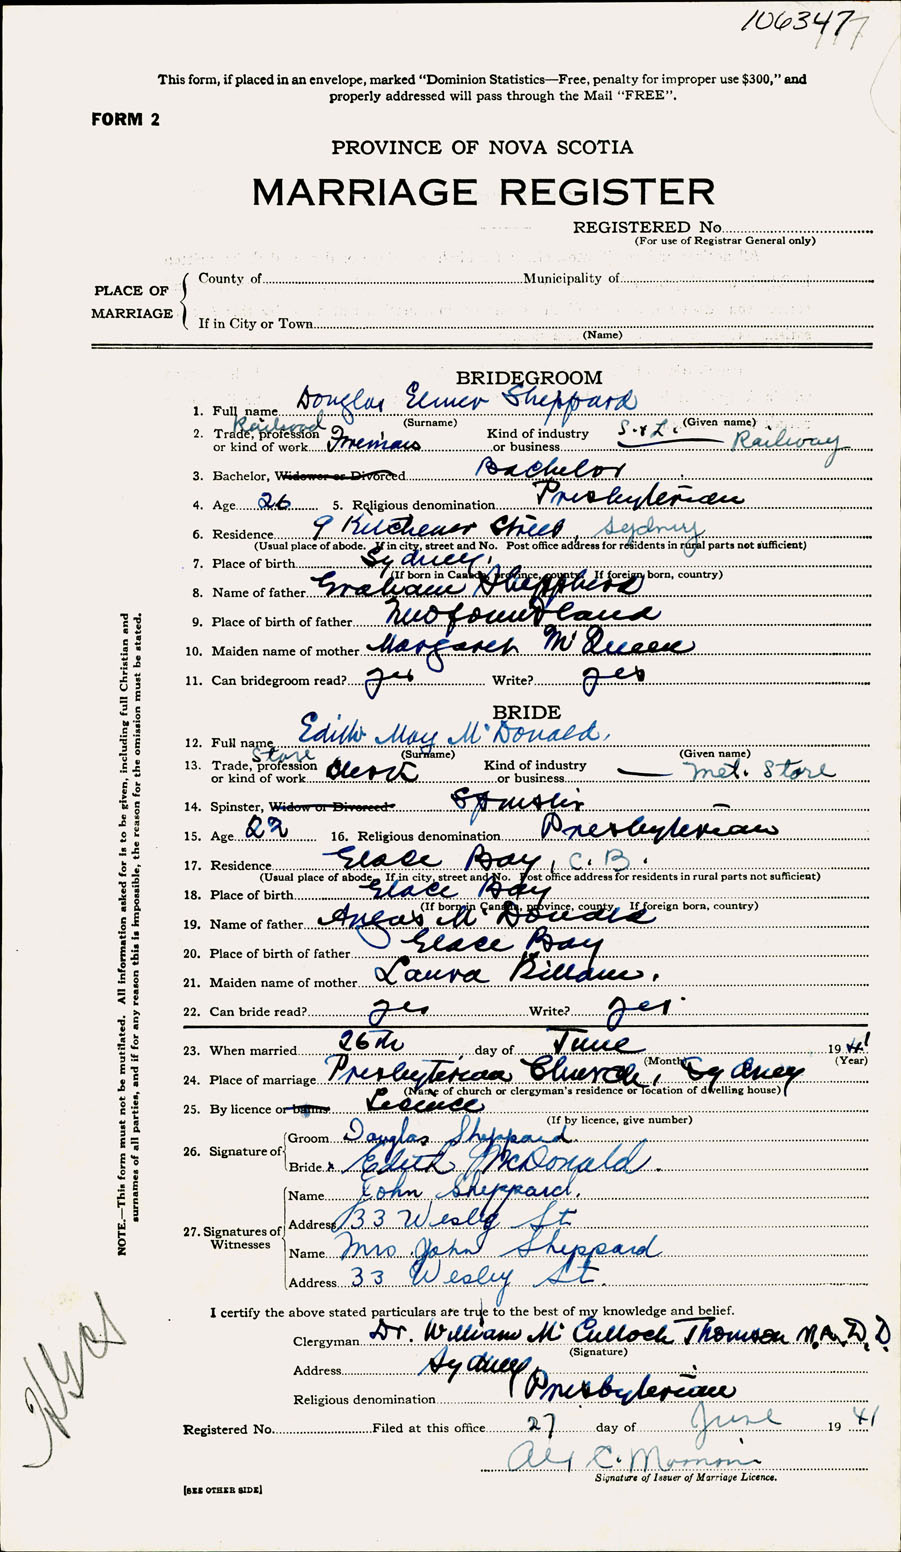 106347
This form, if placed in an envelope, marked “Dominion Statistics—Free, penalty for improper use $300,” and
properly addressed will pass through the Mail “FREE”.
FORM 2
PROVINCE OF NOVA SCOTIA
MARRIAGE REGISTER
REGISTERED No.
(For use of Registrar General only)
PLACE OF MARRIAGE
County of Municipality of
If in City or Town
(Name)
BRIDEGROOM
1. Full name Douglas Elmer Sheppard
(Surname) (Given name)
Railroad S. & L.
2. Trade, profession or kind of work Foreman Kind of industry or business Railway
3. Bachelor, Widower or Divorced Bachelor
4. Age 26 5. Religious denomination Presbyterian
6. Residence 9 Kitchener Street, Sydney
(Usual place of abode. If in city, street and No. Post office address for residents in rural parts not sufficient)
7. Place of birth Sydney.
(If born in Canada, province, county. If foreign born, country)
8. Name of father Graham Sheppard
9. Place of birth of father Newfoundland
10. Maiden name of mother Margaret McQueen
11. Can bridegroom read? yes Write? yes
BRIDE
12. Full name Edith May McDonald.
(Surname) (Given name)
Store
13. Trade, profession or kind of work Clerk Kind of industry or business — Met. Store
14. Spinster, Widow or Divorced Spinster
15. Age 22 16. Religious denomination Presbyterian
17. Residence Glace Bay, C. B.
(Usual place of abode. If in city, street and No. Post office address for residents in rural parts not sufficient)
18. Place of birth Glace Bay
(If born in Canada, province, county. If foreign born, country)
19. Name of father Angus McDonald
20. Place of birth of father Glace Bay
21. Maiden name of mother Laura Killam.
22. Can bride read? yes Write? yes.
23. When married 26th day of June 1941
(Month) (Year)
24. Place of marriage Presbyterian Church, Sydney
(Name of church or clergyman's residence or location of dwelling house)
25. By licence or banns Licence
(If by licence, give number)
26. Signature of Groom Douglas Sheppard.
Bride Edith McDonald.
27. Signatures of Witnesses Name John Sheppard.
Address 33 Wesley St
Name Mrs John Sheppard
Address 33 Wesley St.
I certify the above stated particulars are true to the best of my knowledge and belief.
Clergyman Dr. William McCulloch Thomson M.A., D.D
(Signature)
Address Sydney,
Religious denomination Presbyterian
Registered No. Filed at this office 27 day of June 1941
Signature of Issuer of Marriage Licence.
[SEE OTHER SIDE]
NOTE.—This form must not be mutilated. All information asked for is to be given, including full Christian and
surnames of all parties, and if for any reason this is impossible, the reason for the omission must be stated.